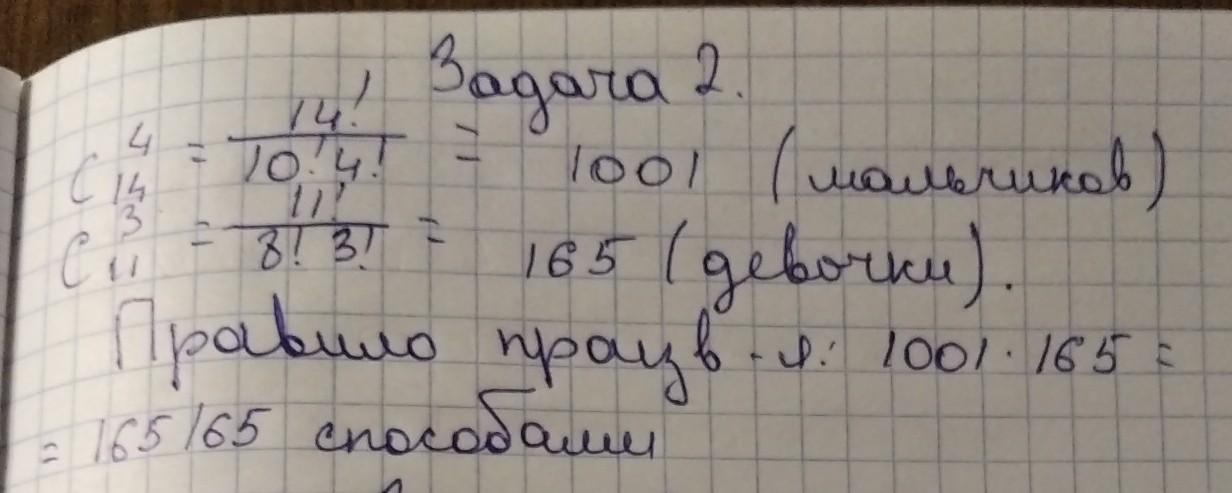 Задача 2.
C₁₄⁴ = 14! / 10! 4! = 1001 (мальчиков)
C₁₁³ = 11! / 8! 3! = 165 (девочки).
Правило произв-я: 1001 · 165 =
= 165165 способами